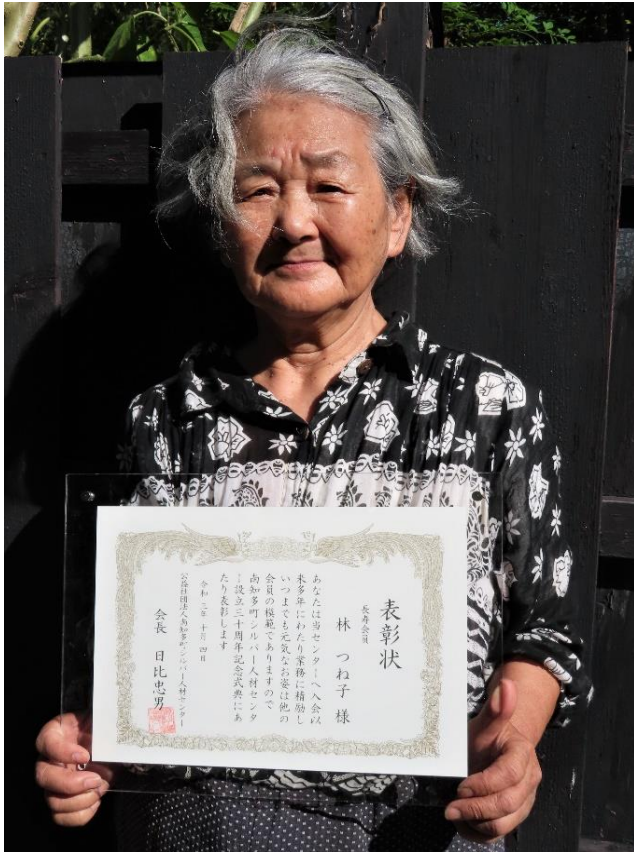 表彰状
長寿会員
林 つね子 様
あなたは当センターへ入会以
来多年にわたり業務に精励し
いつまでも元気なお姿は他の
会員の模範でありますので
南知多町シルバー人材センタ
ー設立三十周年記念式典にあ
たり表彰します
令和三年十月四日
公益社団法人南知多町シルバー人材センター
会長 日比忠男